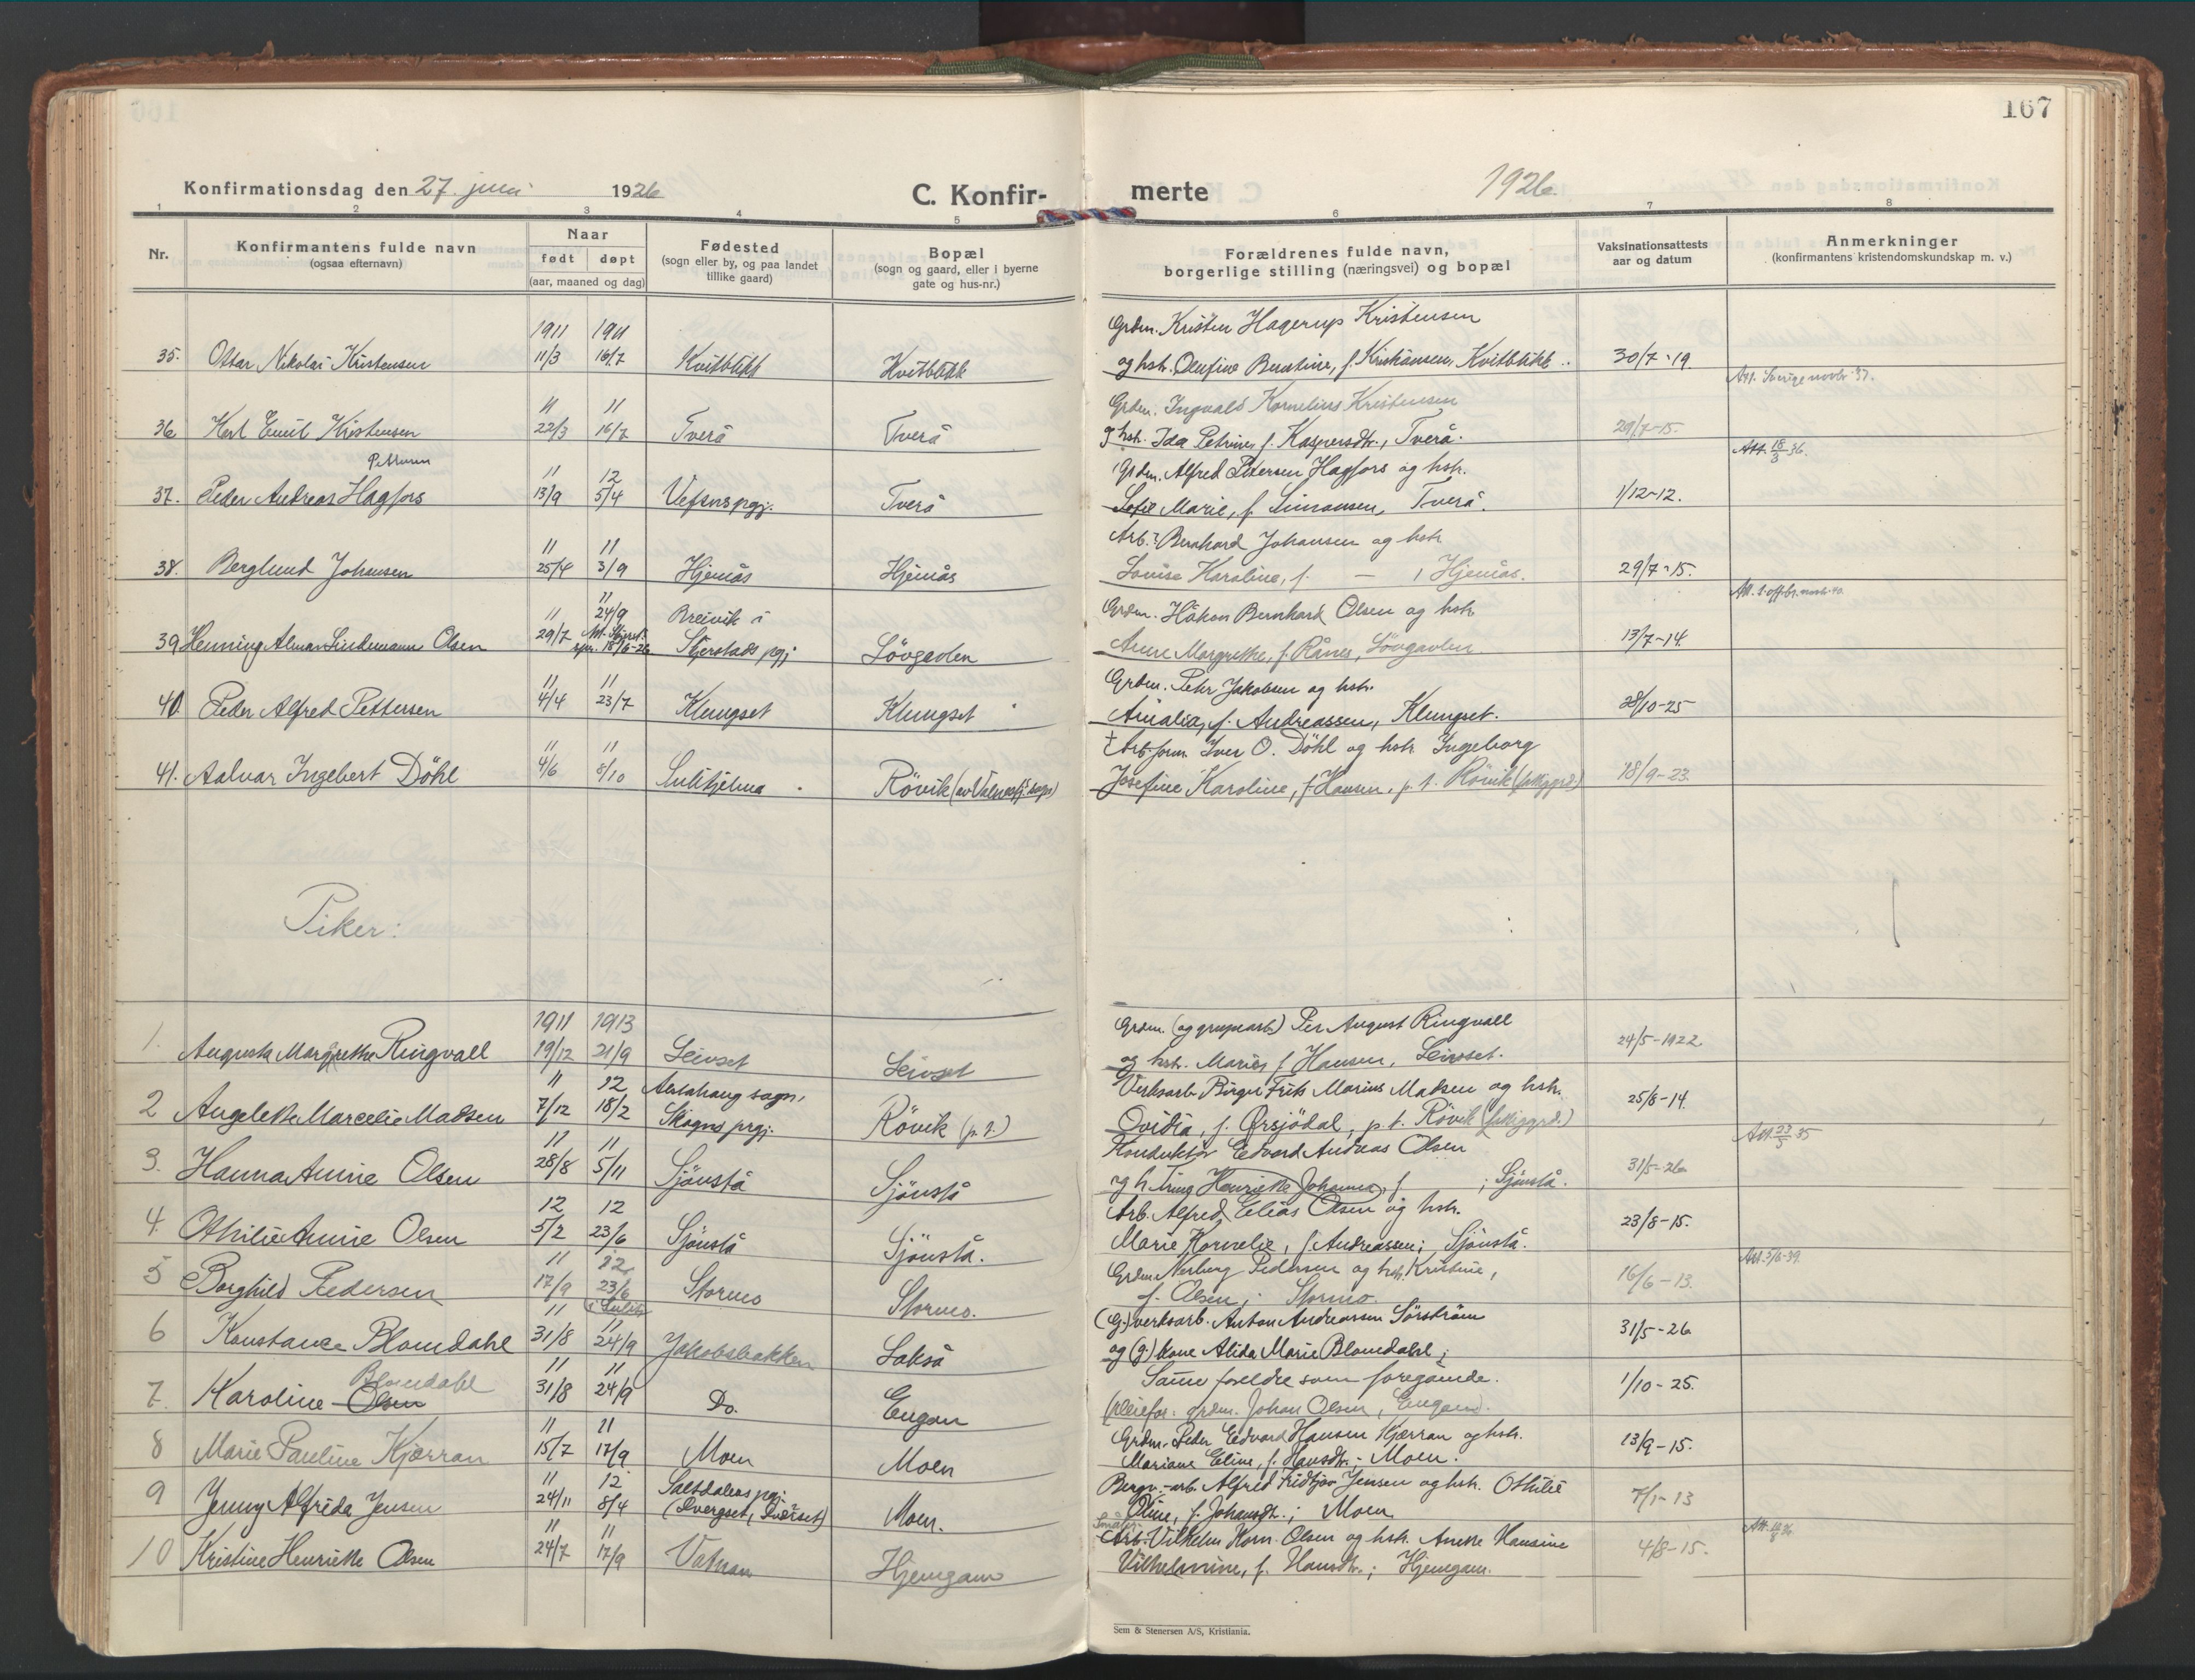 167
Konfirmationsdag den 27. juni 1926
C. Konfir-
merte
1926
1 2 3 4 5 6 7 8
Nr.
Konfirmantens fulde navn
(ogsaa efternavn)
Naar
født døpt
(aar, maaned og dag)
Fødested
(sogn eller by, og paa landet
tillike gaard)
Bopæl
(sogn og gaard, eller i byerne
gate og hus-nr.)
Forældrenes fulde navn,
borgerlige stilling (næringsvei) og bopæl
Vaksinationsattests
aar og datum
Anmerkninger
(konfirmantens kristendomskundskap m. v.)
1911 1911 Grdm. Kristen Hagerup Kristensen
35. Ottar Nikolai Kristensen 11/3 16/7 Kvitblikk Kvitblikk og hstr. Olufine Berntine, f. Kristiansen, Kvitblikk. 30/7-19.
Att. Sverige novbr 37.
11 11 Grdm. Ingvald Kornelius Kristensen
36 Karl Emil Kristensen 22/3 16/7 Tverå Tverå og hstr. Ida Petrine, f. Kaspersdtr., Tverå. 29/7-15.
Att. 18/3 36.
Pettersen
11 12 Grdm. Alfred Pettersen Hagfors og hstr.
37. Peder Andreas Hagfors 13/9 5/4 Vefsns pgj. Tverå Sofie Marie, f. Simonsen, Tverå. 1/12-12.
11 11 Arb. Bernhard Johansen og hstr
38. Berglund Johansen 25/4 3/9 Hjemås Hjemås Lovise Karoline, f. — , Hjemås. 29/7-15.
11
11 24/9 Breivik i Grdm. Håkon Bernhard Olsen og hstr
39 Henning Almar Lindemann Olsen 29/7 18/6-26 Skjerstads pgj Lövgavlen Anne Margrethe, f. Rånes, Lövgavlen 13/7-14.
11 11 Grdm. Petter Jakobsen og hstr.
40 Peder Alfred Pettersen 4/4 23/7 Klungset Klungset Amalia, f. Andreassen, Klungset. 28/10-25
11 11 Arb.form. Iver O. Döhl og hstr Ingeborg
41. Aalvar Ingebert Döhl 4/6 8/10 Sulitjelma Rövik (av Valnesfj. sogn) Josefine Karoline, f Hansen, p. t. Rövik (fattiggrd) 18/9-23.
Piker:
1911 1913 Grdm. (og grupearb) Per August Ringvall
1. Augusta Margrethe Ringvall 19/12 21/9 Leivset Leivset og hstr. Marie, f Hansen, Leivset. 24/5-1922
11 12 sogn, Verksarb Birger Frits Marius Madsen og hstr.
2 Angelette Marcelie Madsen 7/12 18/2 Skogns prgj. Rövik (p. t.) Ovidia, f. Ørsjödal, p. t. Rövik (fattiggrd.) 25/6-14.
Att. 23/3 35
11 11 Konduktör Edvard Andreas Olsen
3. Hanna Annie Olsen 28/8 5/11 Sjönstå Sjönstå og h. Henriette Johanna, f ; Sjönstå. 31/5-26
12 12 Arb. Alfred Elias Olsen og hstr.
4. Othilie Annie Olsen 5/2 23/6 Sjönstå Sjönstå. Marie Kornelie, f Andreassen; Sjönstå. 23/8-15.
Att. 5/6-39.
11 12 Grdm. Nerberg Pedersen og hstr. Kristine,
5 Borghild Pedersen 17/9 23/6 Stormo Stormo. f. Olsen; Stormo 16/6-13.
11 11 (g.) verksarb. Anton Andreassen Sörström
6 Konstance Blomdahl 31/8 24/9 Jakobsbakken Lakså og (g) kone Alida Marie Blomdahl; 31/5-26
Blomdahl
11 11 Samme foreldre som foregående.
7. Karoline Olsen 31/8 24/9 Do. Engan (pleiefor: grdm. Johan Olsen, Engan). 1/10-25.
11 11 Grdm. Peder Edvard Hansen Kjærran og hstr.
8 Marie Pauline Kjærran 15/7 17/9 Moen Moen Mariane Eline, f. Hansdtr.; Moen. 13/9-15.
11 12 Saltdalens pgj. Bergv.-arb. Alfred Fridtjov Jensen og hstr. Othilie
9 Jenny Alfrida Jensen 24/11 8/4 Moen. Oline, f. Johansdtr.; Moen 7/1-13
11 11 Arb. Vilhelm Korn. Olsen og hstr. Anette Hansine
10 Kristine Henriette Olsen 24/7 17/9 Vatnan Hjemgam Vilhelmine, f. Hansdtr.; Hjemgam. 4/8-15.
Sem & Stenersen A/S, Kristiania.